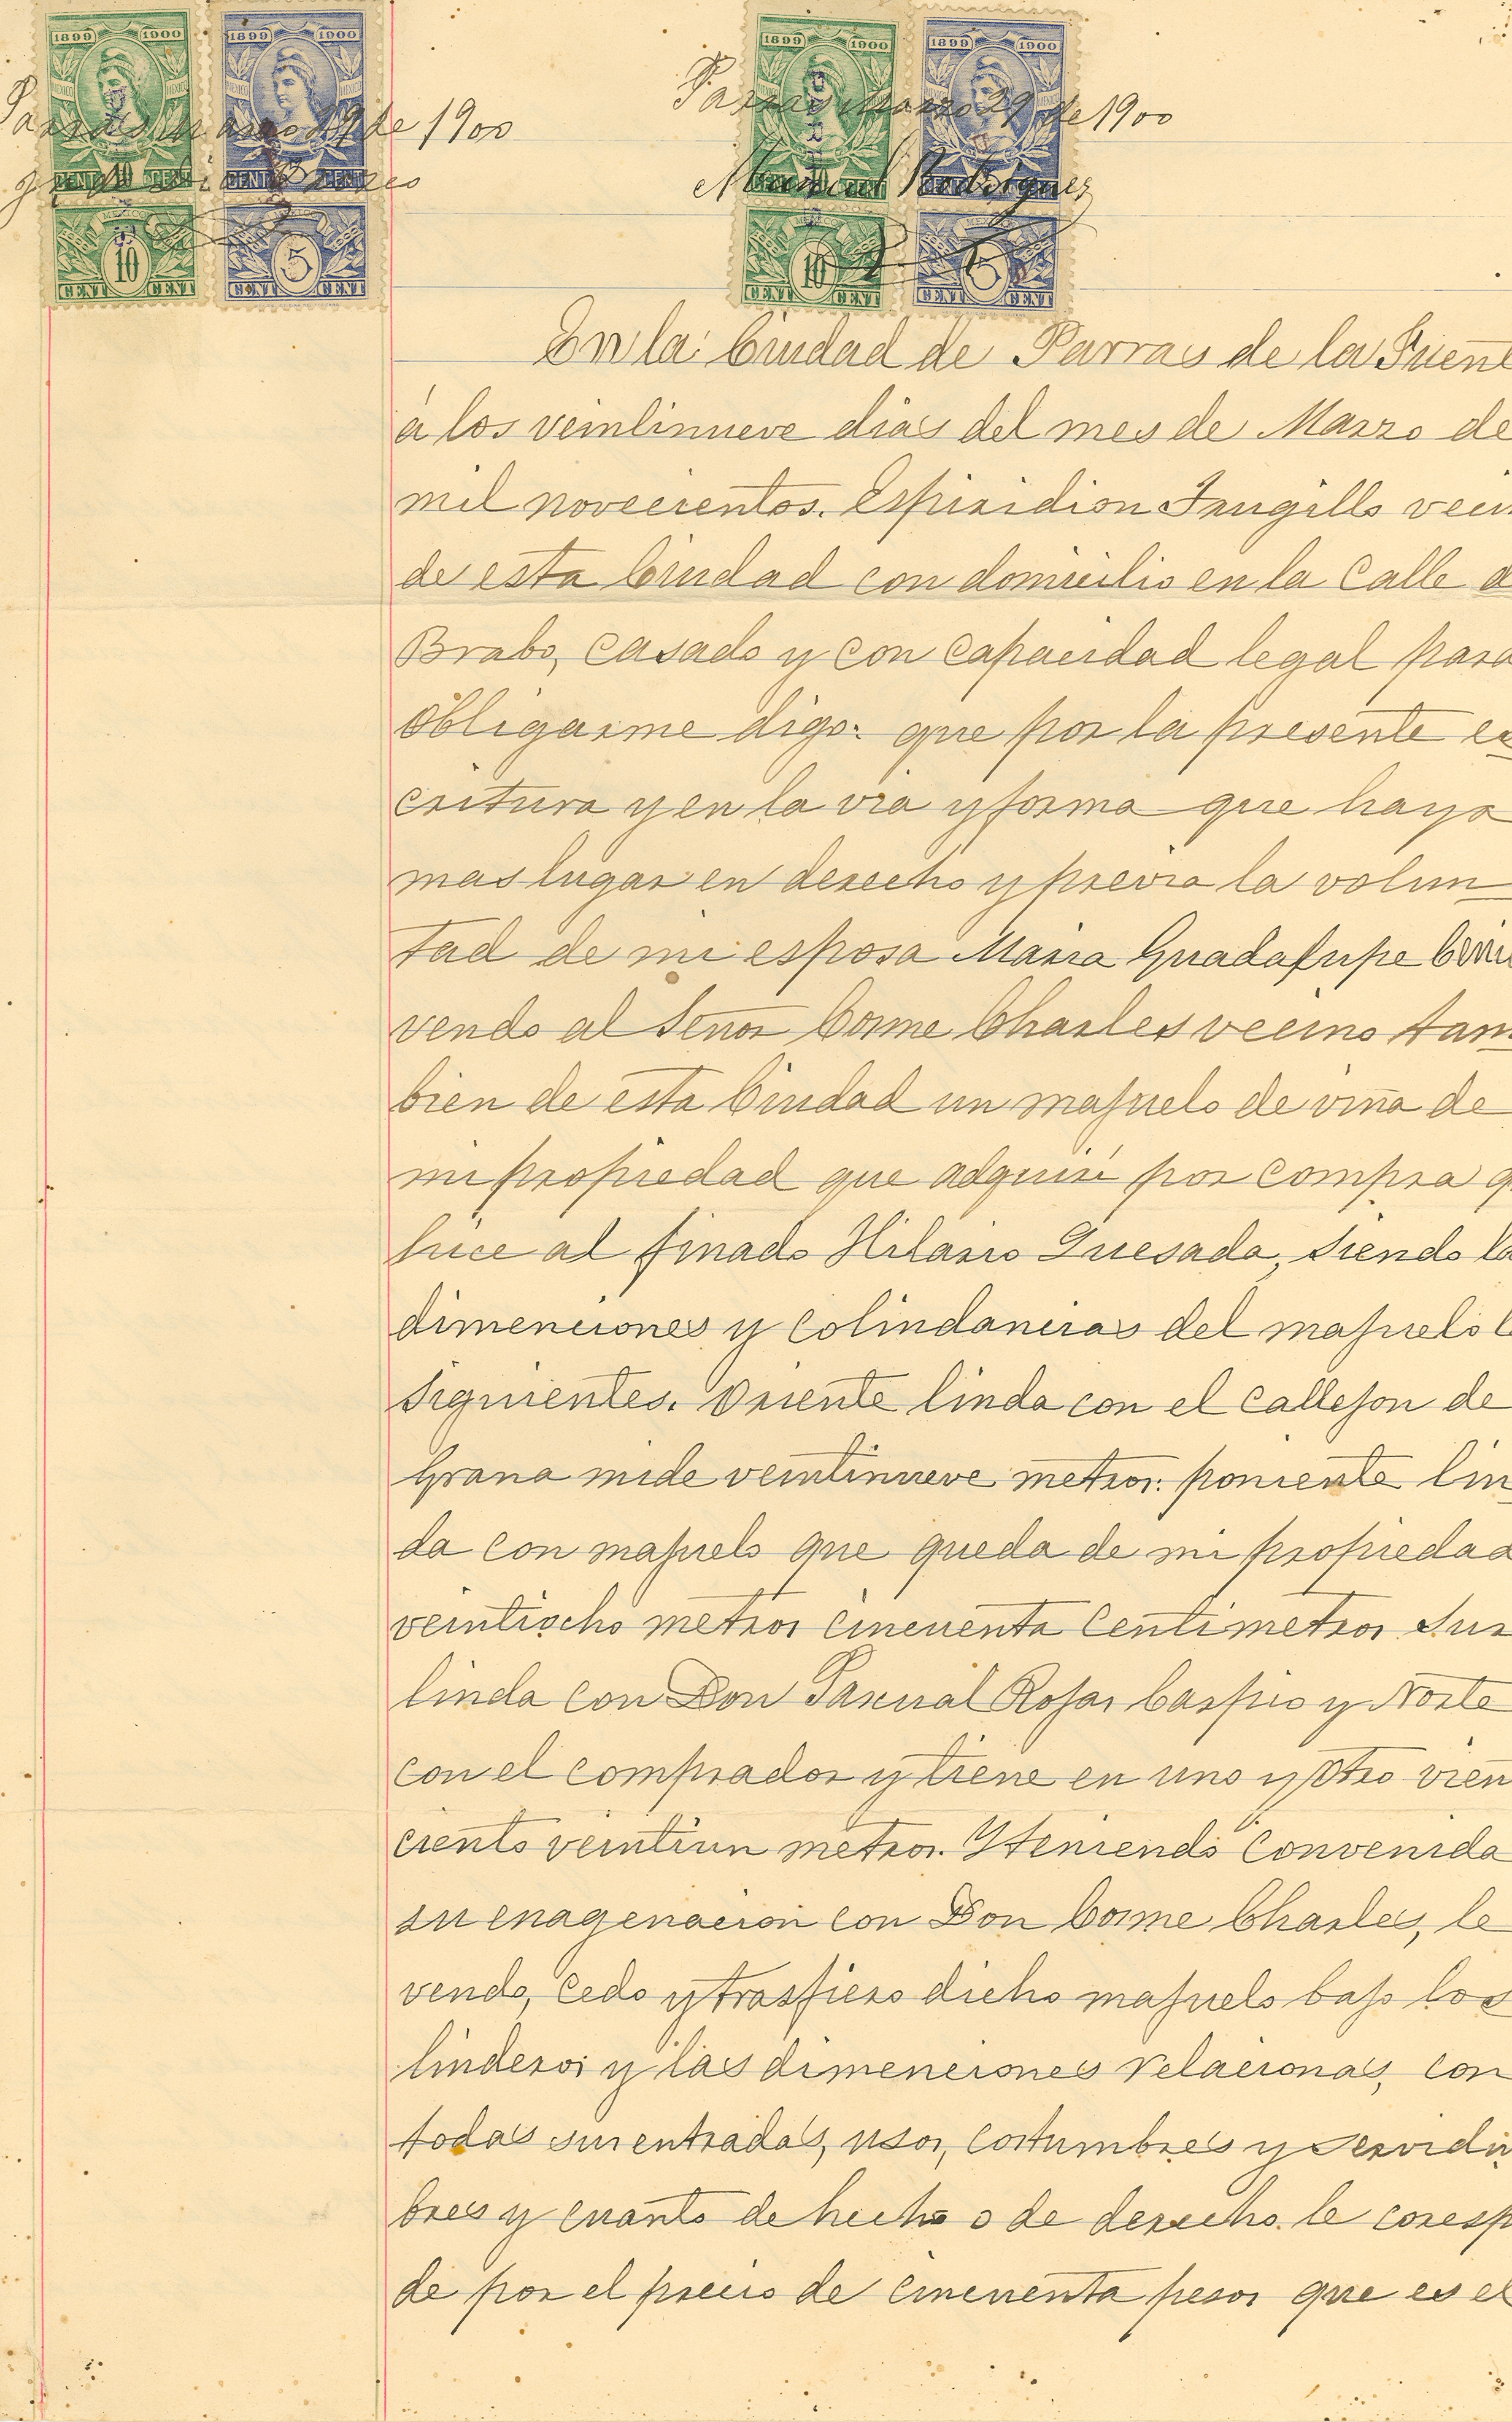 1899 1900 1899 1900
1899 1900 1899 1900
MEXICO MEXICO
Parras Marzo 29 de 1900
Parras Marzo 29 de 1900
10 CENT
10 5
10 5
Rodriguez
En la Ciudad de Parras de la Fuent
á los veintinueve dias del mes de Marzo de
mil novecientos. Espiridion Trugillo veci
de esta Ciudad con domicilio en la Calle d
Brabo, casado y con capacidad legal para
obligarme digo: que por la presente es
critura y en la via y forma que haya
mas lugar en derecho y previa la volun
tad de mi esposa Maria Guadalupe
vendo al Señor Cosme Charles vecino tam
bien de esta Ciudad un majuelo de viña de
mi propiedad que adquirí por compra q
hice al finado Hilario Quesada, siendo la
dimenciones y colindancias del majuelo l
siguientes. Oriente linda con el callejon de
Grana mide veintinueve metros: poniente lin
da con majuelo que queda de mi propiedad
veintiocho metros cincuenta centimetros Sur
linda con Don Pascual Rojas Carpio y Norte
con el comprador y tiene en uno y otro vien
ciento veintiun metros. Y teniendo convenida
su enagenacion con Don Cosme Charles, le
vendo, cedo y trasfiero dicho majuelo bajo los
linderos y las dimenciones relacionas, con
todas sus entradas, usos, costumbres y servidu
bres y cuanto de hecho o de derecho le coresp
de por el precio de cincuenta pesos que es el